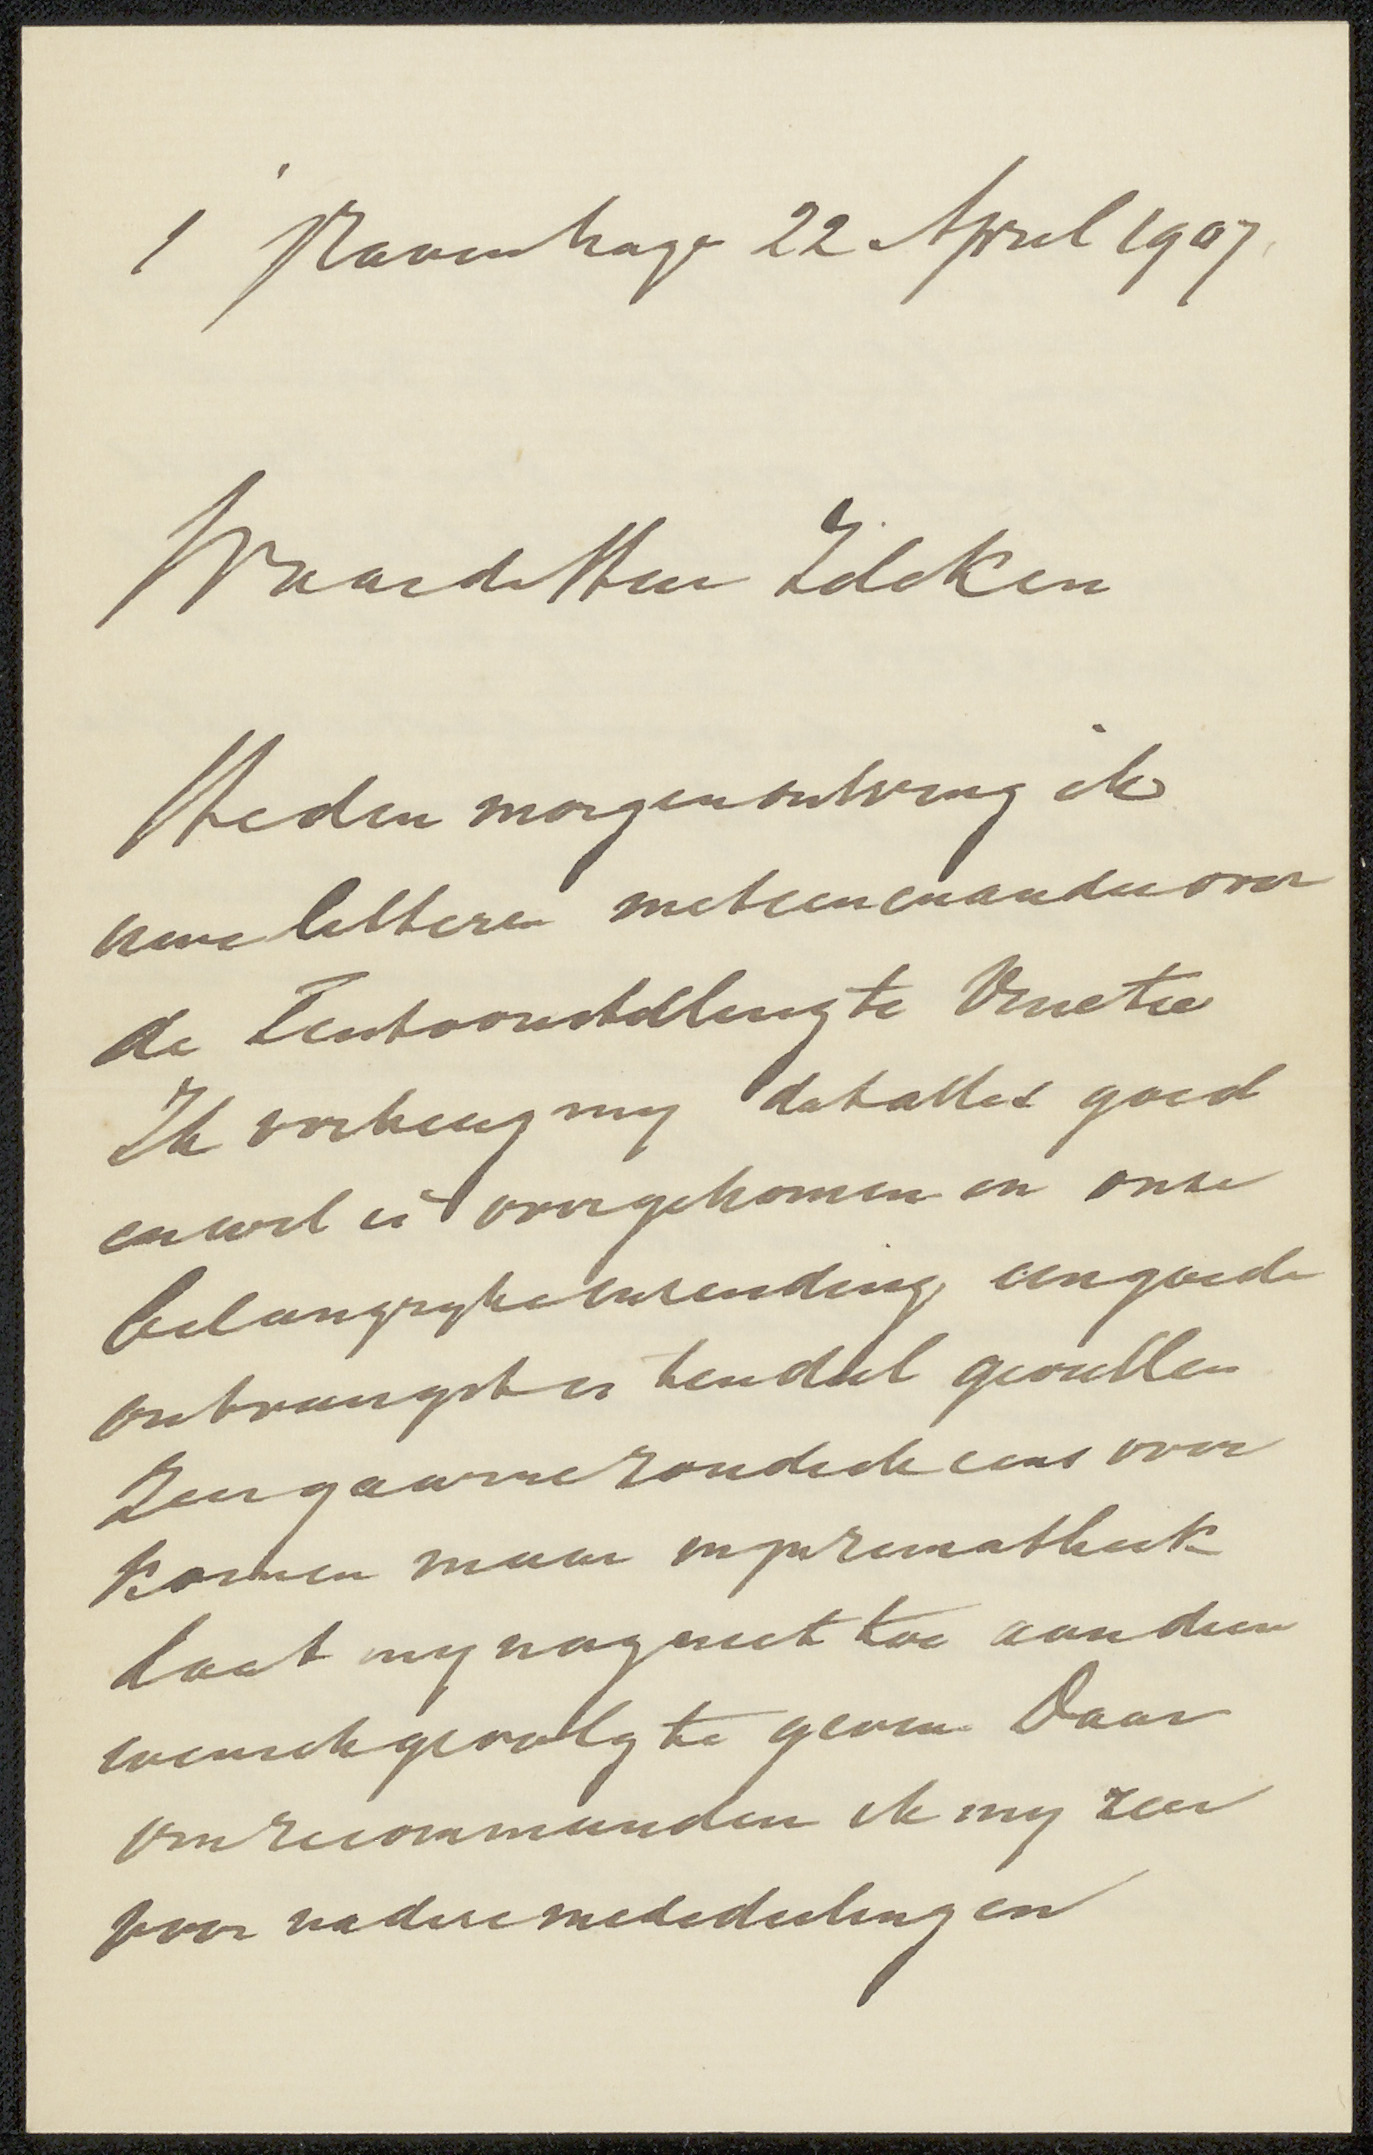 's Gravenhage 22 April 1907.
Waarde Heer Zilcken
Heden morgen ontving ik
uwe letteren met een en ander over
de Tentoonstelling te Venetie
Ik verheug my dat alles goed
en wel is overgekomen en onze
belangryke inzending een goede
ontvangst is ten deel gevallen
Zeer gaarne zoude ik eens over
komen maar myne
laat my nog niet toe aan dien
wensch gevolg te geven. Daar
om recommandeer ik my zeer
voor nadere mededeelingen